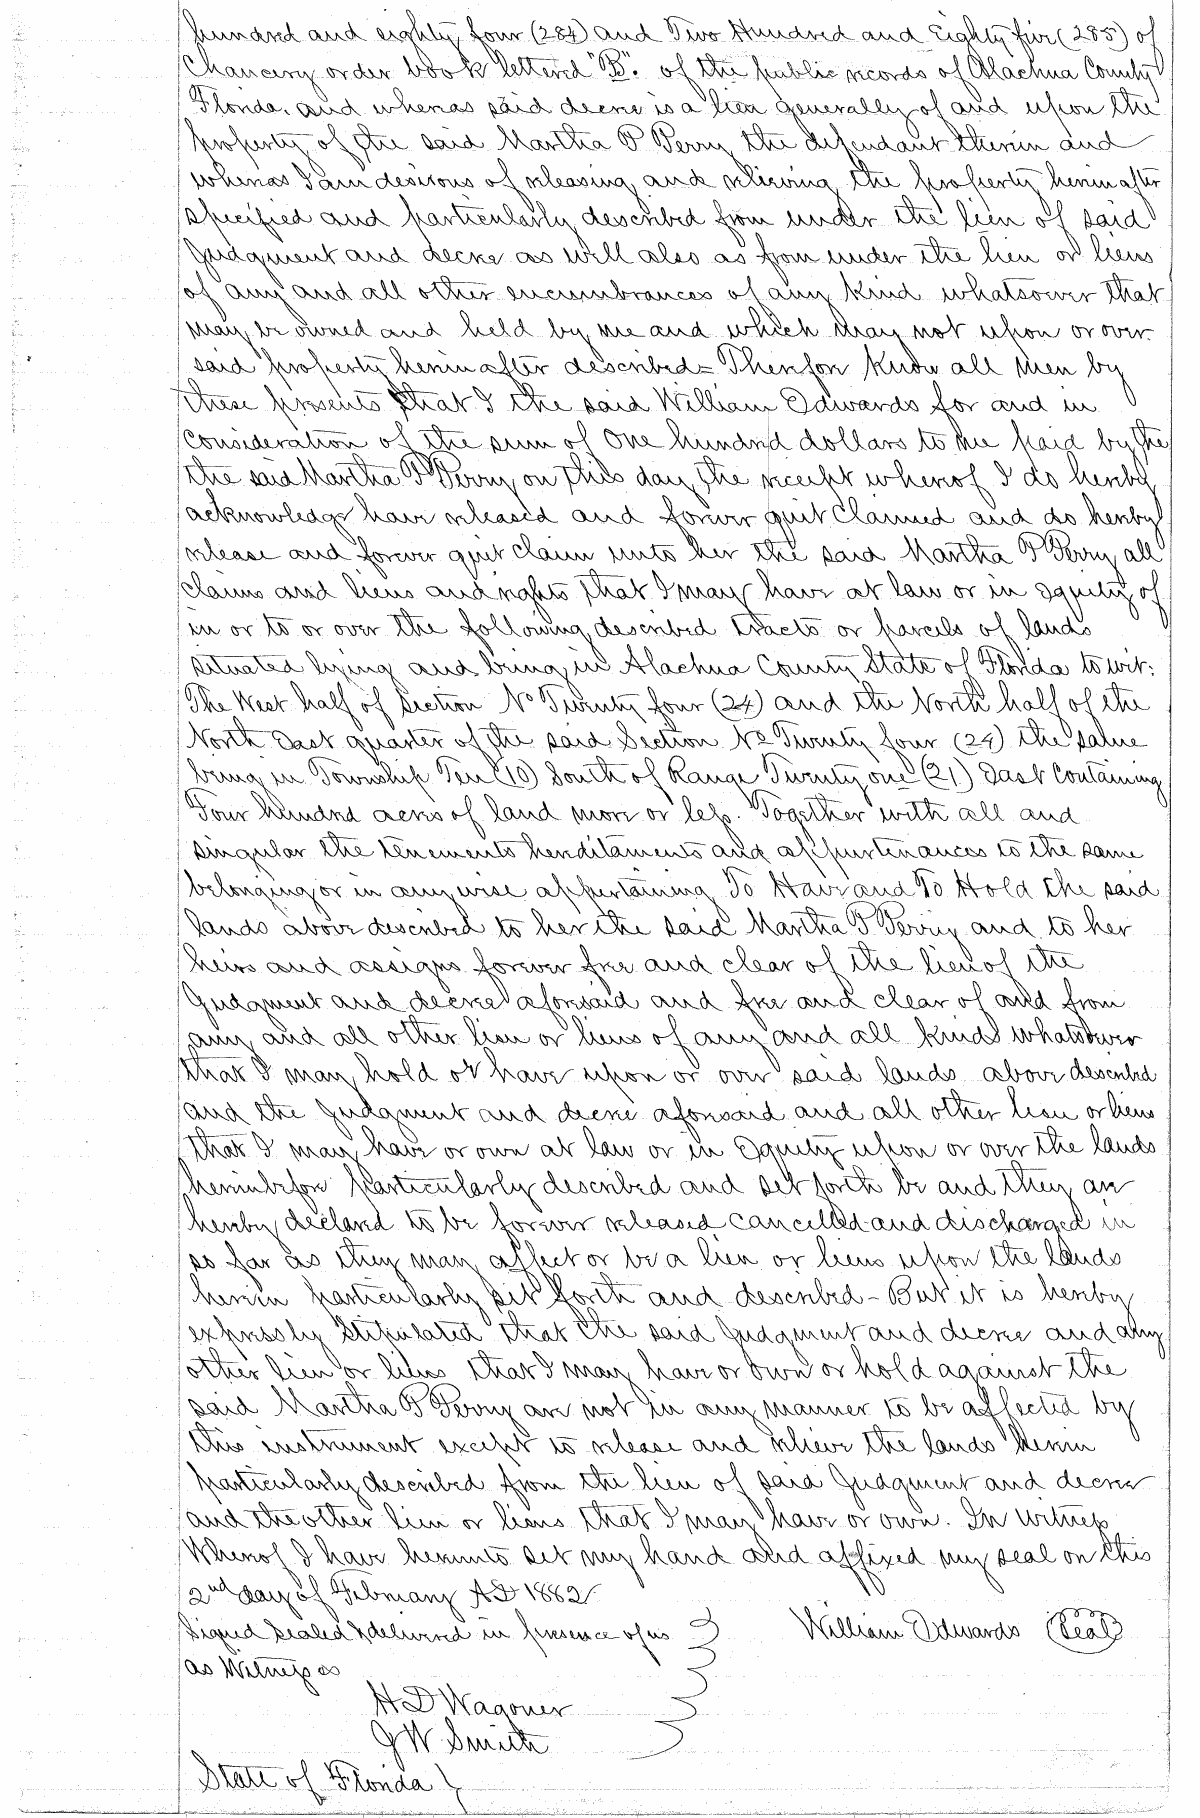 hundred and eighty four (284) and Two Hundred and Eighty five (285) of
Chancery order book lettered "B". of the public records of Alachua County
Florida. and whereas said decree is a lien generally of and upon the
property of the said Martha P Perry the defendant therein and
whereas I am desirous of releasing and relieving the property herein after
specified and particularly described from under the lien of said
Judgment and decree as well also as from under the lien or liens
of any and all other encumbrances of any kind whatsoever that
may be owned and held by me and which may not upon or over
said property herein after described = Therefore Know all men by
these presents that I the said William Edwards for and in
consideration of the sum of One hundred dollars to me paid by the
the said Martha P Perry on this day the receipt whereof I do hereby
acknowledge have released and forever quit Claimed and do hereby
release and forever quit claim unto her the said Martha P Perry all
claims and liens and rights that I may have at law or in Equity of
in or to or over the following described tracts or parcels of lands
situated lying and being in Alachua County State of Florida to wit:
The West half of Section No Twenty four (24) and the North half of the
North East quarter of the said Section No Twenty four (24) the same
being in Township Ten (10) South of Range Twenty one (21) East Containing
Four hundred acres of land more or less. Together with all and
singular the tenements hereditaments and appurtenances to the same
belonging or in anywise appertaining To Have and To Hold the said
lands above described to her the said Martha P Perry and to her
heirs and assigns forever free and clear of the lien of the
Judgment and decree aforesaid and free and clear of and from
any and all other lien or liens of any and all kinds whatsoever
that I may hold or have upon or over said lands above described
and the Judgment and decree aforesaid and all other lien or liens
that I may have or own at law or in Equity upon or over the lands
hereinbefore particularly described and set forth be and they are
hereby declared to be forever released cancelled and discharged in
so far as they may affect or be a lien or liens upon the lands
herein particularly set forth and described - But it is hereby
expressly stipulated that the said Judgment and decree and any
other lien or liens that I may have or own or hold against the
said Martha P Perry are not in any manner to be affected by
this instrument except to release and relieve the lands herein
particularly described from the lien of said Judgment and decree
and the other lien or liens that I may have or own. In Witness
Whereof I have hereunto set my hand and affixed my seal on this
2nd day of February AD 1882
Signed sealed & delivered in presence of us William Edwards (Seal)
as Witnesses
H D Wagoner
J W Smith
State of Florida }